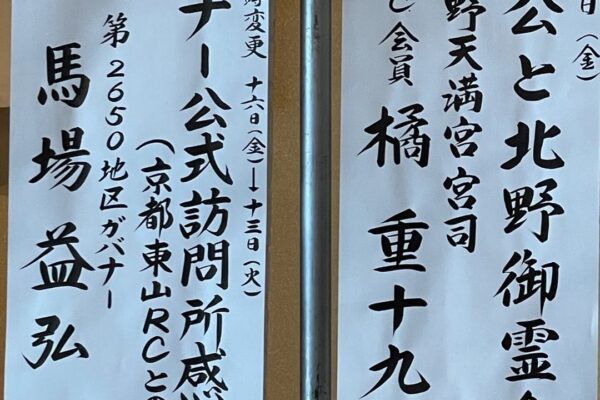 日(金)
公と北野御霊
野天満宮宮司
会員 橘 重十九
変更 十六日(金)→十三日(火)
ナー公式訪問所感
(京都東山RCとの
第2650地区ガバナー
馬場益弘